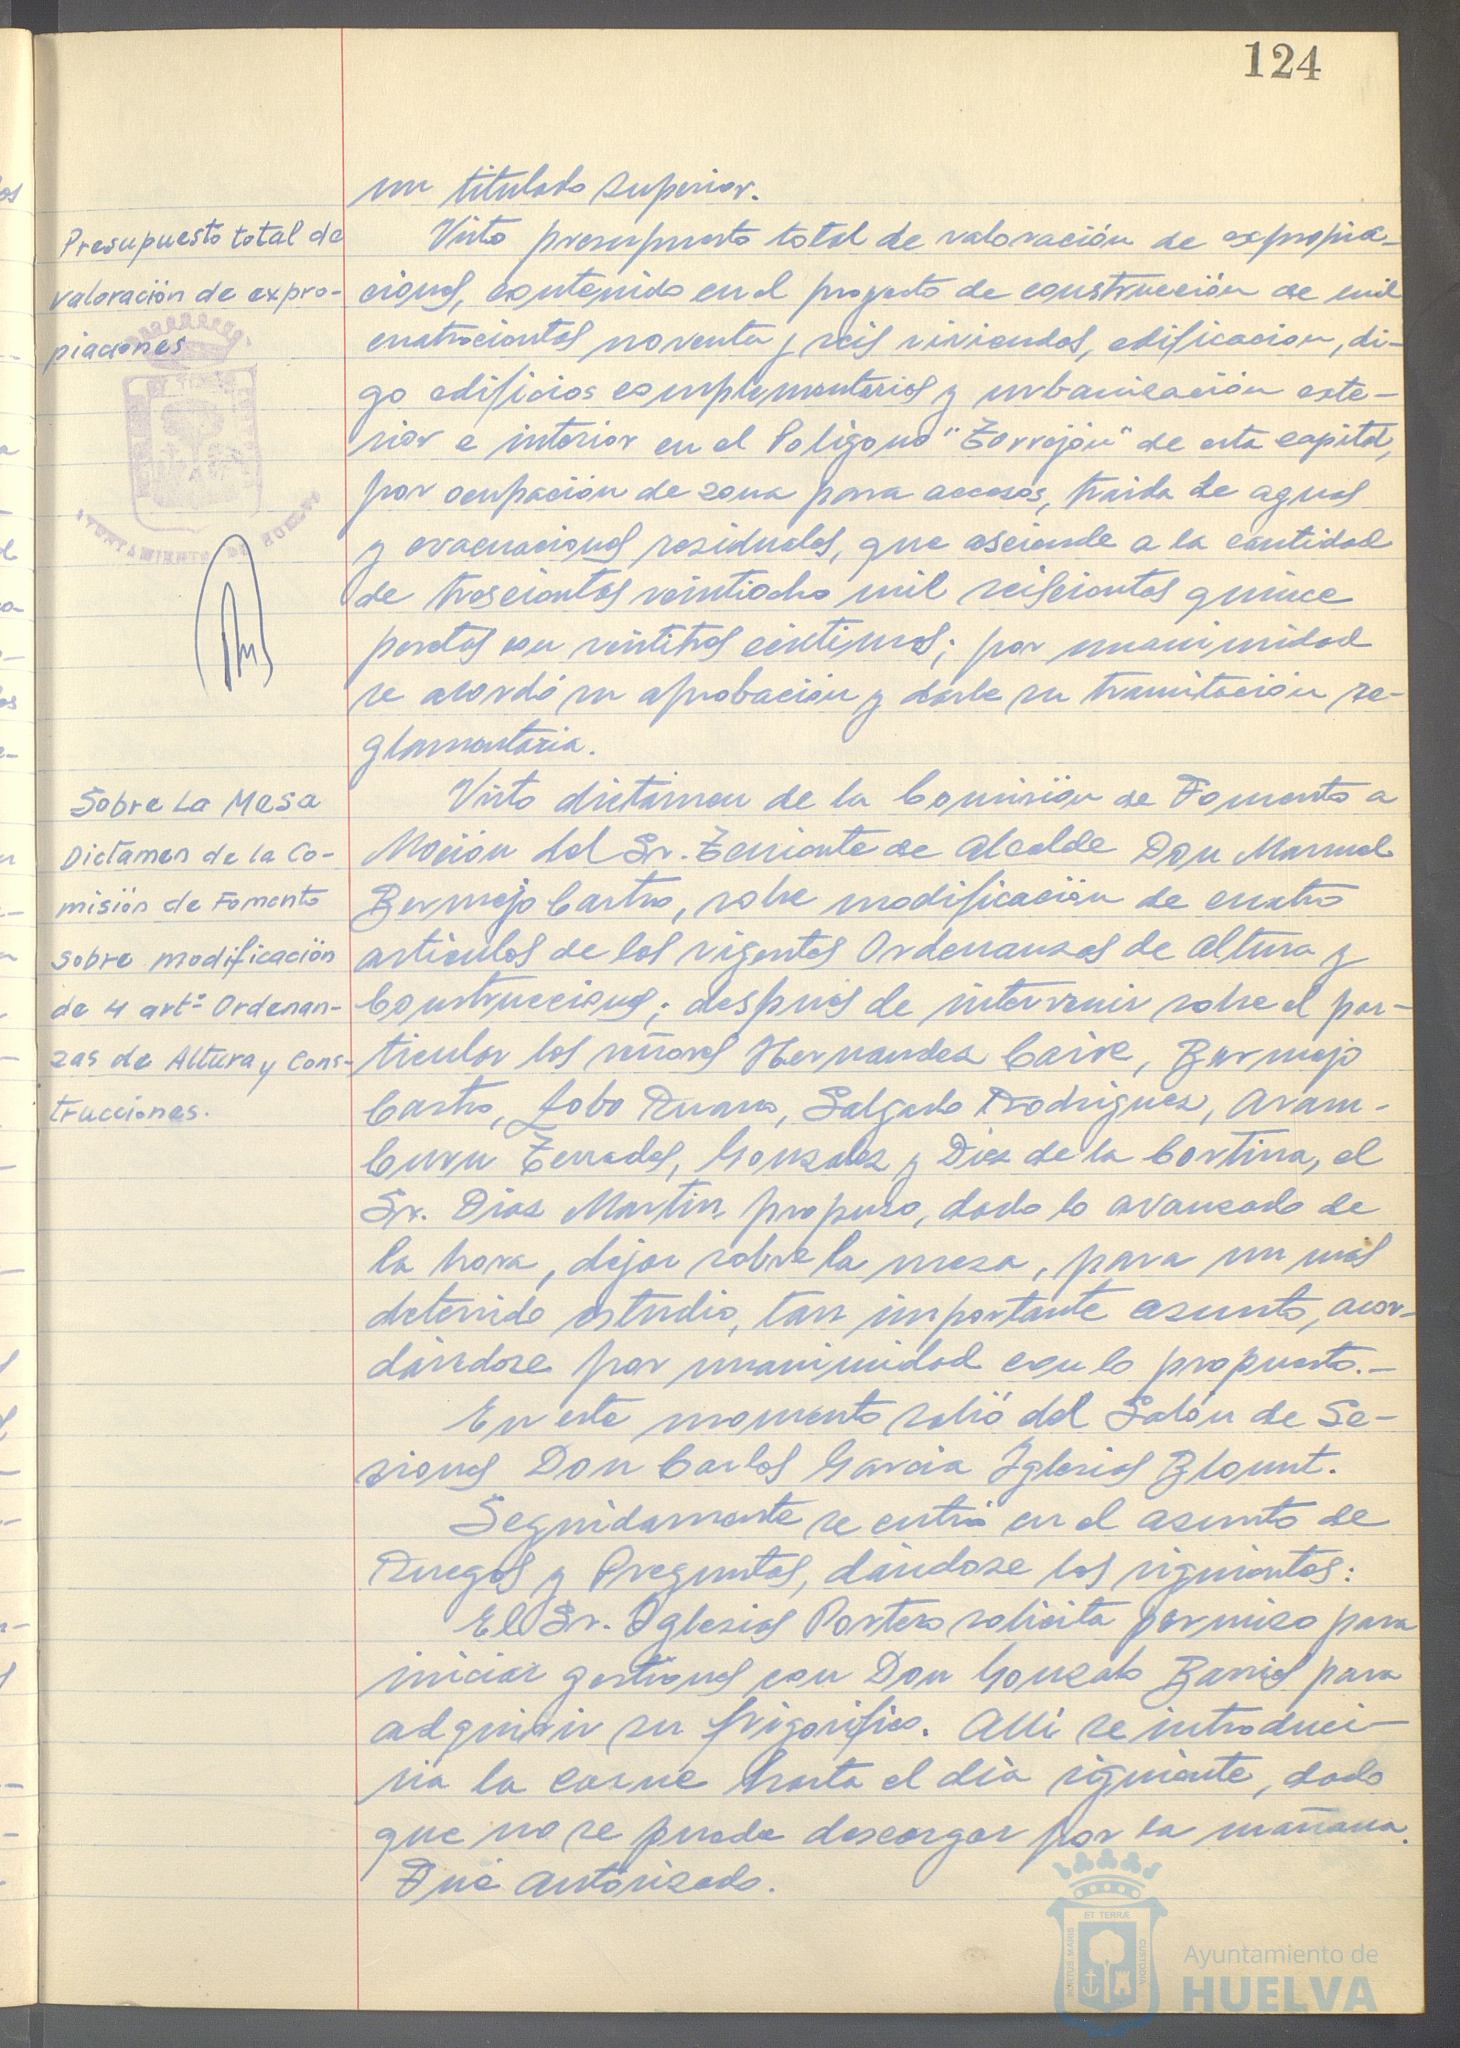 124
un titulado superior.
Presupuesto total de
valoración de expro-
piaciones
Visto presupuesto total de valoración de expropia-
ciones, contenido en el proyecto de construcción de mil
cuatrocientas noventa y seis viviendas, edificacion, di-
go edificios complementarios y urbanización exte-
rior e interior en el Poligono "Torrejón" de esta capital,
por ocupación de zona para accesos, traida de aguas
y evacuaciones residuales, que asciende a la cantidad
de trescientas veintiocho mil seiscientas quince
pesetas con veintitres céntimos; por unanimidad
se acordó su aprobación y darle su tramitación re-
glamentaria.
AYUNTAMIENTO DE HUELVA
Sobre La Mesa
Dictamen de la Co-
misión de Fomento
sobre modificación
de 4 artº Ordenan-
zas de Altura y Cons-
trucciones.
Visto dictámen de la Comisión de Fomento a
Moción del Sr. Teniente de Alcalde Don Manuel
Bermejo Castro, sobre modificación de cuatro
articulos de las vigentes Ordenanzas de Altura y
Construcciones; después de intervenir sobre el par-
ticular los señores Hernandez Caire, Bermejo
Castro, Lobo Ruano, Salgado Rodriguez, Aram-
buru Terrades, Gonzalez y Diez de la Cortina, el
Sr. Diaz Martin propuso, dado lo avanzado de
la hora, dejar sobre la mesa, para un más
detenido estudio, tan importante asunto, acor-
dándose por unanimidad con lo propuesto.-
En este momento salió del Salón de Se-
siones Don Carlos Garcia Iglesias Blount.
Seguidamente se entró en el asunto de
Ruegos y Preguntas, dándose los siguientes:
El Sr. Iglesias Portero solicita permiso para
iniciar gestiones con Don Gonzalo Barrios para
adquirir su frigorifico. Alli se introduci-
ria la carne hasta el dia siguiente, dado
que no se puede descargar por la mañana.
Fué autorizado.
PORTUS MARIS
ET TERRÆ
CUSTODIA
Ayuntamiento de
HUELVA